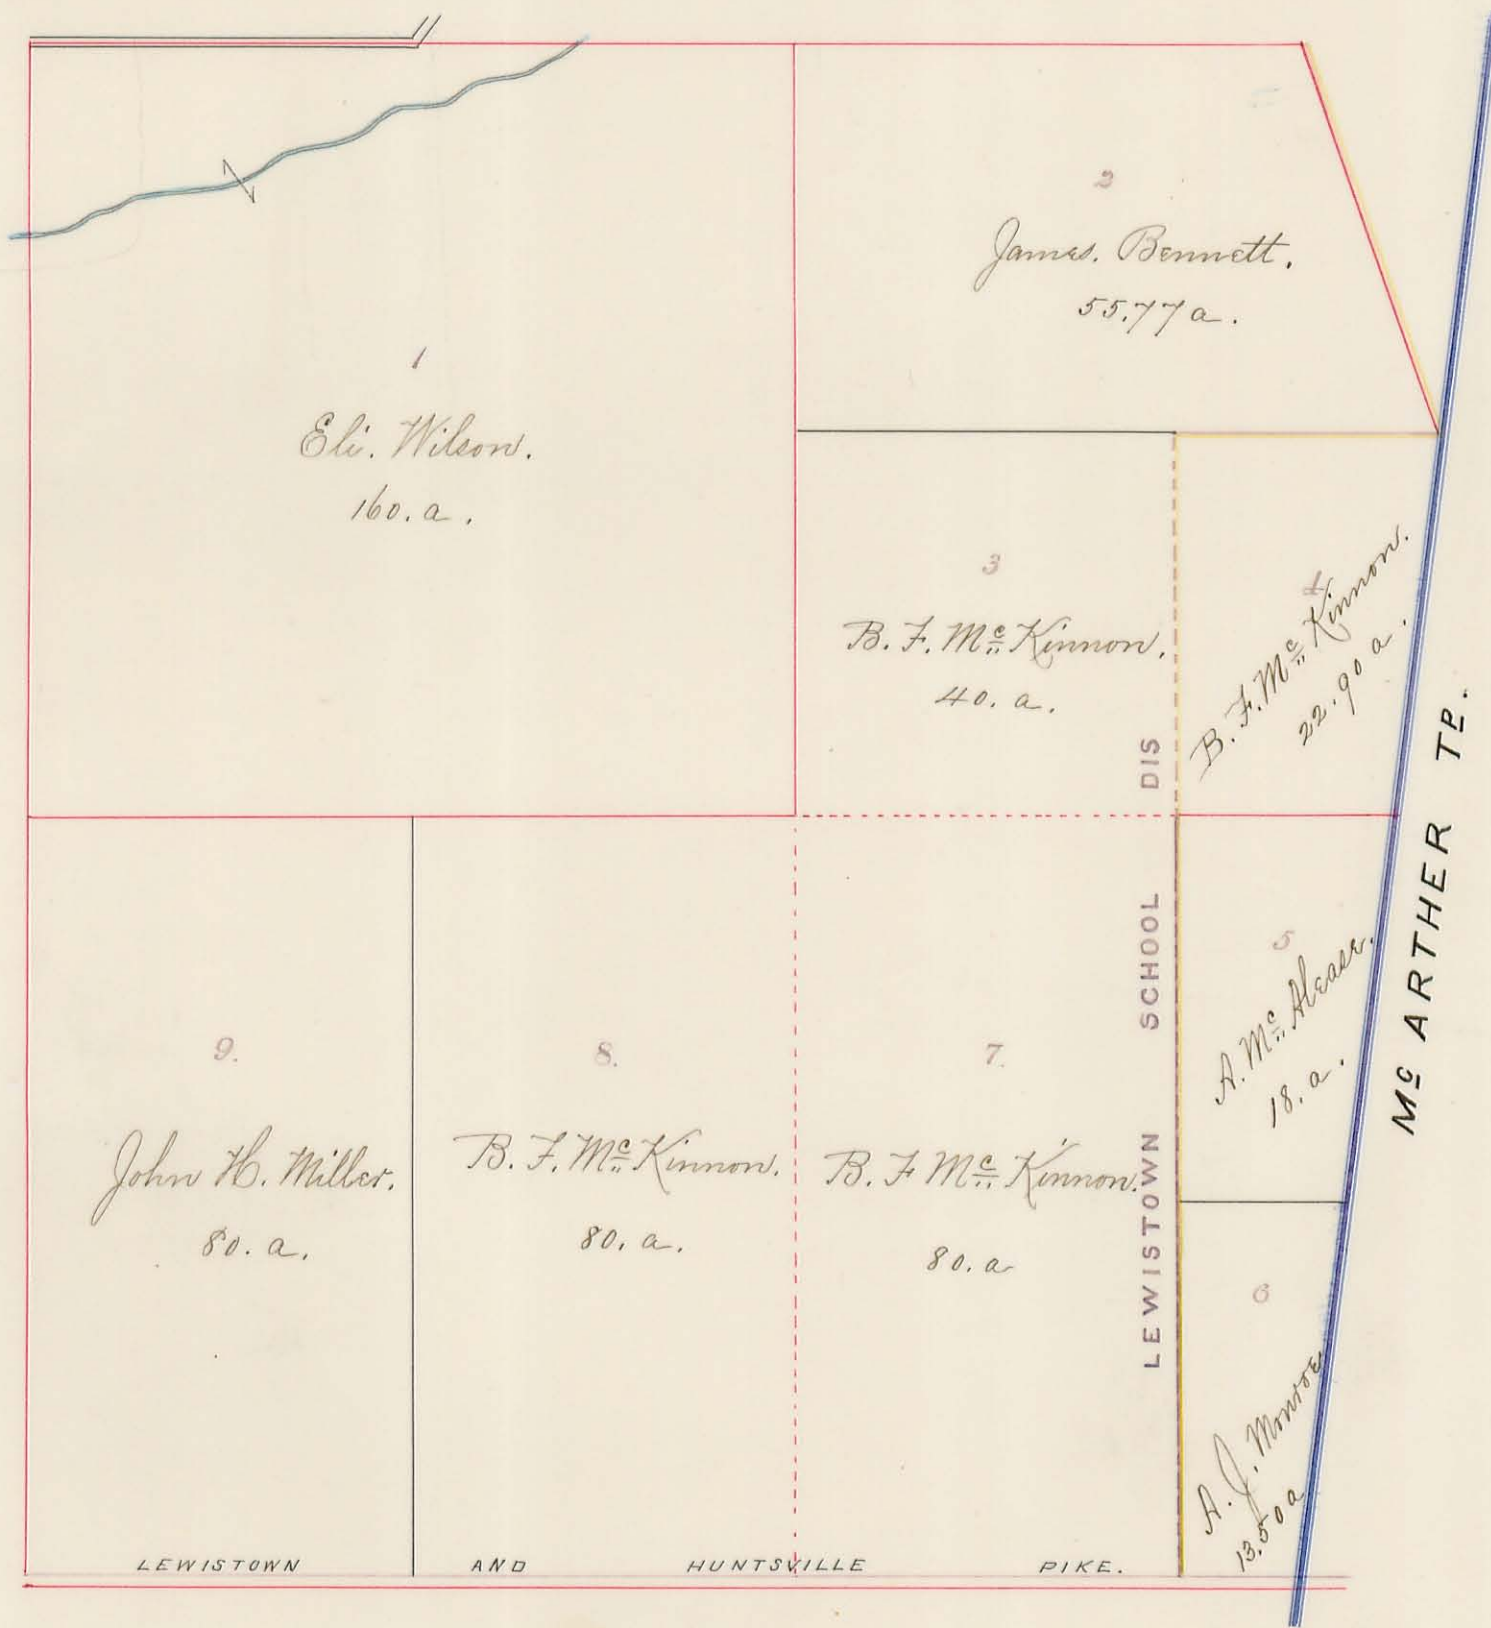 1
Eli. Wilson.
160. a.
2
James. Bennett.
55.77 a.
3
B. F. Mc Kinnon.
40. a.
4
B. F. Mc Kinnon.
22.90 a.
5
A. Mc Alease.
18. a.
6
A. J. Monroe
13.50 a
7.
B. F Mc Kinnon.
80. a
8.
B. F. Mc Kinnon.
80. a.
9.
John H. Miller.
80. a.
LEWISTOWN SCHOOL DIS
Mc ARTHER TP.
LEWISTOWN AND HUNTSVILLE PIKE.